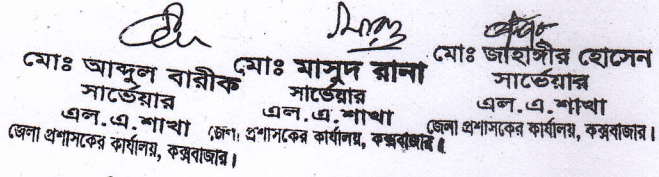 মোঃ আব্দুল বারীক
সার্ভেয়ার
এল.এ.শাখা
জেলা প্রশাসকের কার্যালয়, কক্সবাজার।
মোঃ মাসুদ রানা
সার্ভেয়ার
এল.এ.শাখা
জেলা প্রশাসকের কার্যালয়, কক্সবাজার।
মোঃ জাহাঙ্গীর হোসেন
সার্ভেয়ার
এল.এ.শাখা
জেলা প্রশাসকের কার্যালয়, কক্সবাজার।